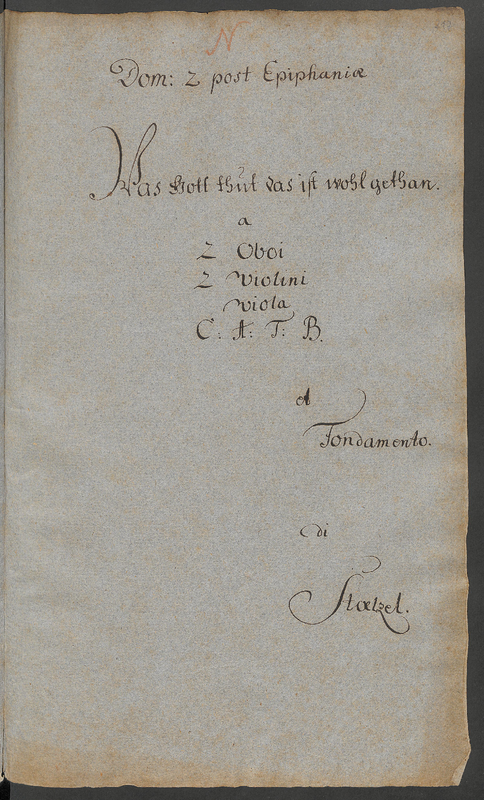 N
Dom: 2 post Epiphaniæ
Was Gott thut das ist wohl gethan.
a
2 Oboi
2 Violini
Viola
C: A: T: B.
et
Fondamento.
di
Stœlzel.